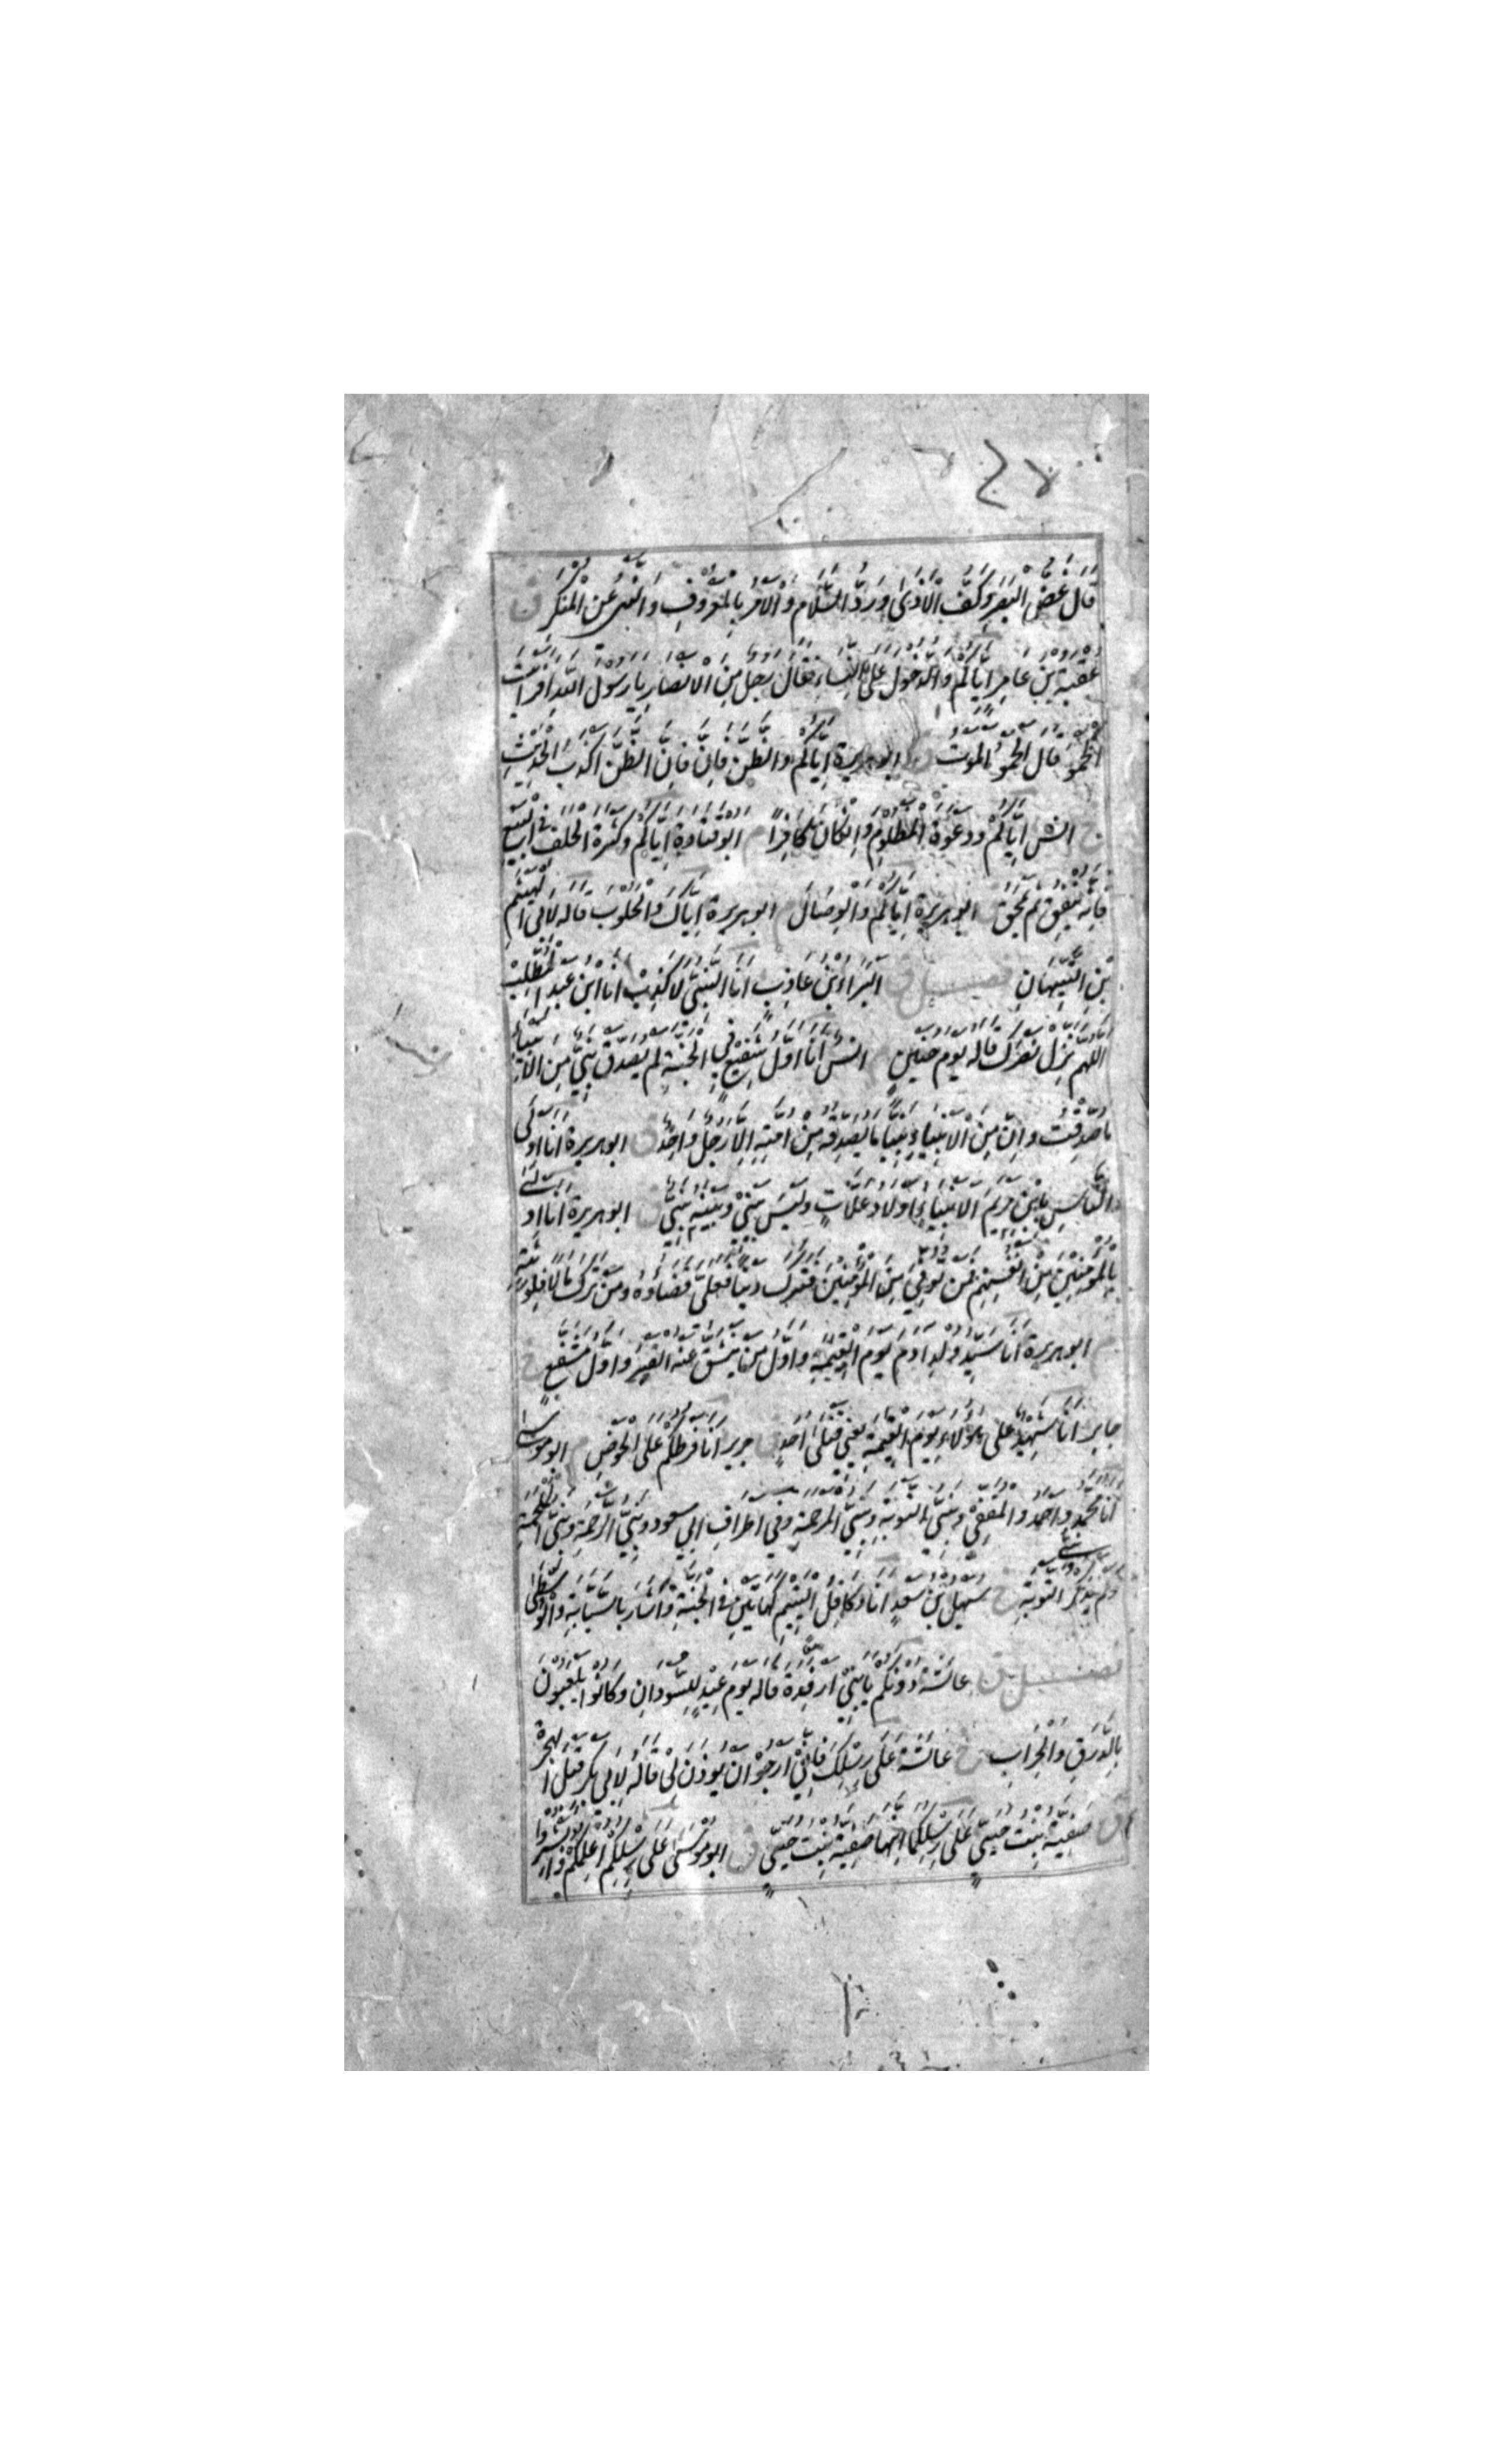 قَالَ غَضُّ الْبَصَرِ وَكَفُّ الْاَذَى وَرَدُّ السَّلَامِ وَالْاَمْرُ بِالْمَعْرُوفِ وَالنَّهْىُ عَنِ الْمُنْكَرِ ق
عُقْبَةُ بْنُ عَامِرٍ اِيَّاكُمْ وَالدُّخُولَ عَلَى النِّسَاءِ فَقَالَ رَجُلٌ مِنَ الْاَنْصَارِ يَارَسُولَ اللّٰهِ اَفَرَاَيْتَ
الْحَمْوَ قَالَ الْحَمْوُ الْمَوْتُ ق ابوهريرة اِيَّاكُمْ وَالظَّنَّ فَاِنَّ فَاِنَّ الظَّنَّ اَكْذَبُ الْحَدِيْثِ
خ انس اِيَّاكُمْ وَدَعْوَةَ الْمَظْلُومِ وَاِنْ كَانَ كَافِرًا م ابو قتادة اِيَّاكُمْ وَكَثْرَةَ الْحَلْفِ فِى الْبَيْعِ
فَاِنَّهُ يُنْفِقُ ثُمَّ يَمْحَقُ ق ابوهريرة اِيَّاكُمْ وَالْوِصَالَ م ابوهريرة اِيَّاكَ وَالْحَلُوبَ قَالَه لِاَبِى الْهَيْثَمِ
بْنِ التَّيِّهَانِ فصل ق اَلْبَرَاءُ بْنُ عَازِبٍ اَنَا النَّبِىُّ لَاكَذِبْ اَنَا ابْنُ عَبْدِ الْمُطَّلِبْ
اَللّٰهُمَّ نَزِّلْ نَصْرَكَ قَالَه يَوْمَ حُنَيْنٍ م انس اَنَا اَوَّلُ شَفِيْعٍ فِى الْجَنَّةِ لَمْ يُصَدَّقْ نَبِىٌّ مِنَ الْاَنْبِيَاءِ
مَا صُدِّقْتُ وَاِنَّ مِنَ الْاَنْبِيَاءِ نَبِيًّا مَا يُصَدِّقُهُ مِنْ اُمَّتِهِ اِلَّا رَجُلٌ وَاحِدٌ ق ابوهريرة اَنَا اَوْلَى
النَّاسِ بِابْنِ مَرْيَمَ الْاَنْبِيَاءُ اَوْلَادُ عَلَّاتٍ وَلَيْسَ بَيْنِىْ وَبَيْنَهُ نَبِىٌّ ق ابوهريرة اَنَا اَوْلَى
بِالْمُؤْمِنِيْنَ مِنْ اَنْفُسِهِمْ فَمَنْ تُوُفِّىَ مِنَ الْمُؤْمِنِيْنَ فَتَرَكَ دَيْنًا فَعَلَىَّ قَضَاؤُهُ وَمَنْ تَرَكَ مَالًا فَلِوَرَثَتِهِ
م ابوهريرة اَنَا سَيِّدُ وُلْدِ اٰدَمَ يَوْمَ الْقِيٰمَةِ وَاَوَّلُ مَنْ يَنْشَقُّ عَنْهُ الْقَبْرُ وَاَوَّلُ مُشَفَّعٍ خ
جابر اَنَا شَهِيْدٌ عَلَى هٰؤُلَاءِ يَوْمَ الْقِيٰمَةِ يَعْنِى قَتْلَى اُحُدٍ ق جرير اَنَا فَرَطُكُمْ عَلَى الْحَوْضِ م ابو موسى
اَنَا مُحَمَّدٌ وَاَحْمَدُ وَالْمُقَفِّى وَنَبِىُّ التَّوْبَةِ وَنَبِىُّ الْمَرْحَمَةِ وَفِى اَطْرَافِ ابِى مسعود وَنَبِىُّ الرَّحْمَةِ وَنَبِىُّ الْمَلْحَمَةِ
وَلَمْ يَذْكُرِ التَّوْبَةِ خ سهل بن سعد اَنَا وَكَافِلُ الْيَتِيْمِ كَهَاتَيْنِ فِى الْجَنَّةِ وَاَشَارَ بِالسَّبَّابَةِ وَالْوُسْطَى
فصل ق عائشة دُونَكُمْ يَابَنِىْ اَرْفِدَةَ قَالَه يَوْمَ عِيْدٍ لِلسُّودَانِ وَكَانُوا يَلْعَبُونَ
بِالدَّرَقِ وَالْحِرَابِ خ عائشة عَلَى رِسْلِكَ فَاِنِّىْ اَرْجُوْ اَنْ يُؤْذَنَ لِىْ قَالَهُ لِاَبِى بَكْرٍ قَبْلَ الْهِجْرَةِ
ق صفية بنت حيى عَلَى رِسْلِكُمَا اِنَّهَا صَفِيَّةُ بِنْتُ حُيَىٍّ ق ابو موسى عَلَى رِسْلِكُمْ اُعْلِمُكُمْ وَاَبْشِرُوا